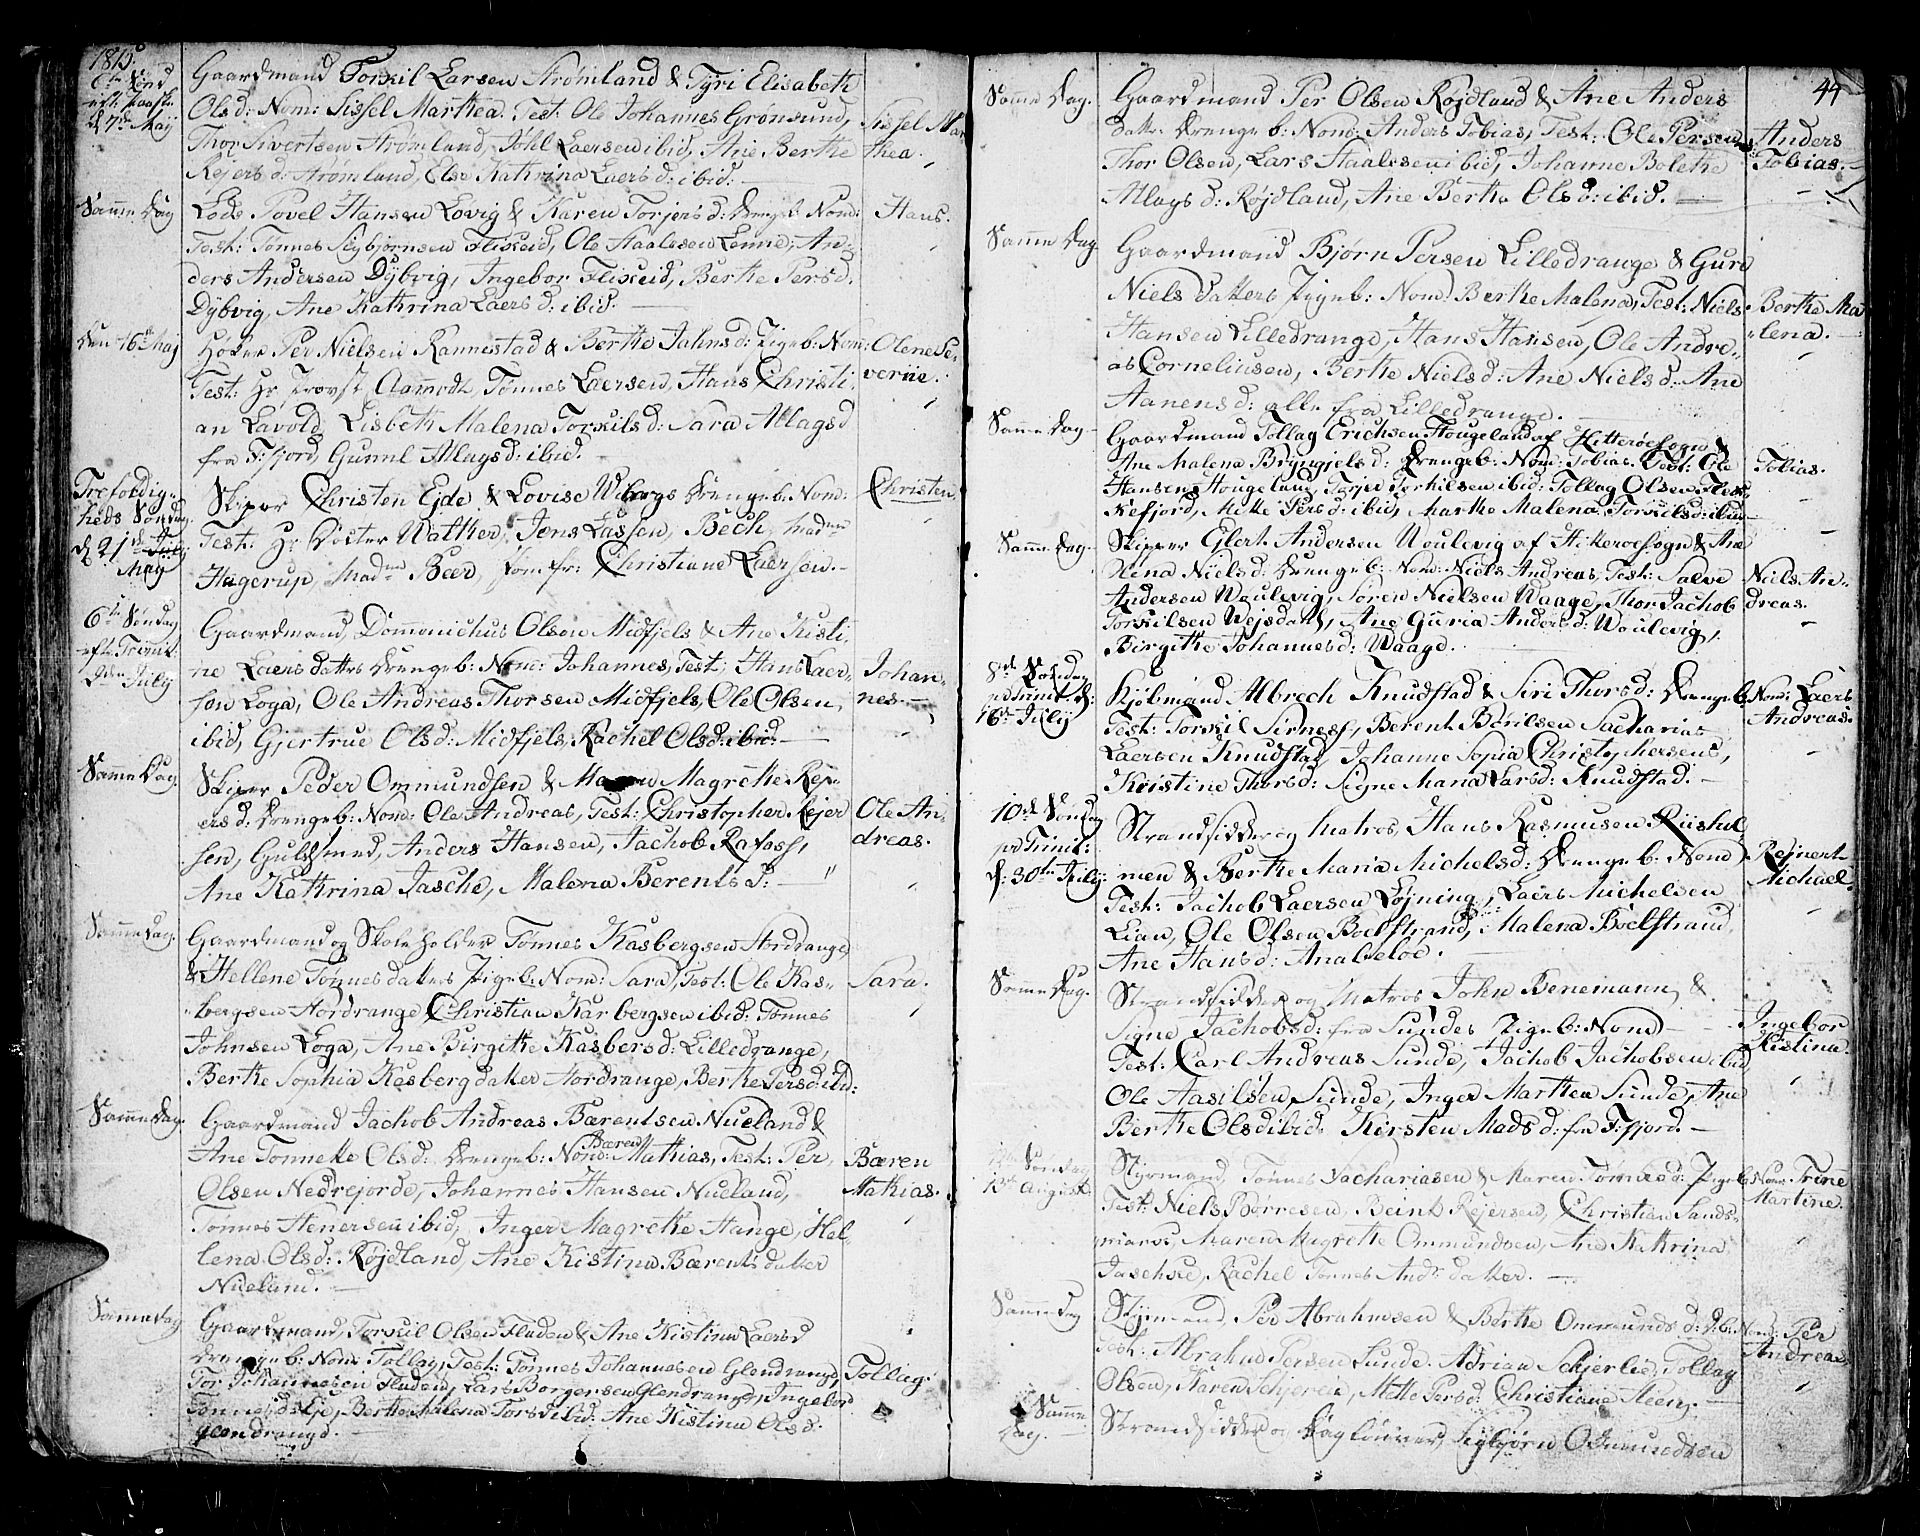 1815
6te Sönd
eft: Paaske
d 7de Maij
Gaardmand Torkil Larsen Strömland & Tyri Elisabeth
Olsd: Nom: Sissel Marthea. Test: Ole Johannes Grönsund,
Thor Sivertsen Strömland, Johl Laersen ibid, Ane Berthe
Rejersd: Strömland, Else Kathrina Laersd: ibid:
Sissel Mar
thea.
Samme Dag
Lods Povel Hansen Lovig & Karen Torjers d: Drengeb: Nom:
Test: Tönnes Sigbjörnsen Flikeid, Ole Staalesen Lenne, An-
ders Andersen Dybvig, Ingebor Flikeid, Berthe Persd.
Dybvig, Ane Kathrina Laersd: ibid.
Hans.
Den 16de Maj
Höker Per Nielsen Rannestad & Berthe Jahnsd: Pigeb: Nom:
Test: Hr Provst Aamodt, Tönnes Laersen, Hans Christi
an Lavold, Lisbeth Malena Torkilsd: Sara Allagsd
fra F:fjord, Gunnil Allagsd: ibid.
Olene Se-
verine.
Trefoldig-
heds Söndag.
d 21de July
May
Skiper Christen Eide & Lovise Wibergs Drengeb: Nom:
Test: Hr Doctor Walther, Jens Lassen, Bech, Madme
Hagerup, Madme Beer, Jomfr: Christiane Laersen.
Christen
6te Söndag
eft. Trinit:
9den July
Gaardmand, Dommanichus Olsen Midfjels & Ane Kisti
ne Laersdatter Drengeb: Nom: Johannes, Test: Hans Laer-
sen Loga, Ole Andreas Thorsen Midfjels, Ole Olsen,
ibid, Gjertrue Olsd: Midfjels, Rachel Olsd: ibid.
Johan-
nes.
Samme Dag.
Skiper Peder Ommundsen & Maren Magrethe Rej-
ersd: Drengeb: Nom: Ole Andreas, Test: Christopher Rejer
sen, Guldsmed, Anders Hansen, Jachob Rafoss,
Ane Kathrina Jasche, Malena Berents d:
Ole An-
dreas.
Samme Dag.
Gaardmand og Skoleholder Tönnes Kasbergsen Nordrange,
& Hellene Tönnesdatters Pigeb: Nom: Sara, Test: Ole Kas-
bergsen Nordrange, Christian Karbergsen ibid: Tönnes
Johnsen Loga, Ane Birgithe Kasbersd: Lilledrange,
Berthe Sophia Kasbergdatter Nordrange, Berthe Persd ibid:
Sara.
Samme Dag.
Gaardmand Jachob Andreas Bærentsen Nueland &
Ane Tonnette Olsd: Drengeb: Nom: Bæren Mathias, Test: Per
Olsen Nedrejorde, Johannes Hansen Nueland,
Tönnes Henersen ibid, Inger Magrethe Hange, Hel-
lena Olsd: Röjdland, Ane Kistina Bærentsdatter
Nueland.
Bæren
Mathias.
Samme Dag
Gaardmand, Torkil Olsen Fladen & Ane Kistina Laersd
Drengeb: Nom: Tollag, Test: Tönnes Johannesen Glendrange,
Tor Johannesen Fladen, Lars Borgersen Glendrange, Ingebor
Tönnesd: Berthe Malena Torsd ibid: Ane Kistina Olsd:
Glendrange.
Tollag.
44
Samme Dag.
Gaardmand Per Olsen Röjdland & Ane Anders
datter Drengeb: Nom: Anders Tobias, Test: Ole Persen
Thor Olsen, Lars Staalesen ibid, Johanne Bolethe
Allags d: Röjdland, Ane Berthe Olsd: ibid.
Anders
Tobias.
Samme Dag.
Gaardmand Bjørn Persen Lilledrange & Guro
Nielsdatters Pigeb: Nom: Berthe Malena, Test: Niels
Hansen Lilledrange, Hans Hansen, Ole Andre-
as Corneliusen, Berthe Nielsd: Ane Nielsd: Ane
Aanensd: alle fra Lilledrange.
Berthe Ma
lena.
Samme Dag
Gaardmand Tollag Erichsen Hougeland af Hitteröe Sogn &
Ane Malena Bryngjels d: Drengeb: Nom: Tobias. Test: Ole
Hansen Hougeland, Torjer Torkilsen ibid: Tollag Olsen Flek-
kefjord, Mette Persd: ibid, Marthe Malena Torkilsd: ibid
Tobias.
Samme Dag.
Skipper Elert Andersen Woulevig af Hitteröe Sogn & Ane
Olena Nielsd: Drengeb: Nom: Niels Andreas, Test: Salve
Andersen Woulevig, Sören Nielsen Waage, Thor Jachob
Torkilsen Wejsdall, Ane Guria Andersd: Woulevig,
Birgithe Johannesd: Waage.
Niels An-
dreas.
8de Söndag
p Trinit: d:
16de July
Kjöbmand Albrech Knudstad & Siri Thorsd: Drengeb: Nom: Laers
Test: Torkil Sirness, Berent Börilsen Sacharias
Laersen Knudstad, Johanne Sopia Christophersens,
Kristine Thorsd: Signe Maria Larsd: Knudstad.
Andreas.
10de Söndag
p Trinit:
d: 30te July
Strandsidder og Matros, Hans Rasmusen Riishol-
men & Berthe Maria Michelsd: Drengeb: Nom:
Test: Jachob Laersen Löjning, Laers Michelsen
Lian, Ole Olsen Boelstrand, Malena Boelstrand,
Ane Hansd: Anabelöe.
Rejnert
Michael
Samme Dag.
Strandsidder og Matros John Benemann &
Signe Jachobsd: fra Sundes Pigeb: Nom:
Test: Carl Andreas Sunde, Jachob Jachobsen ibid,
Ole Aasilsen Sunde, Inger Marthea Sunde, Ane
Berthe Olsd ibid: Kirsten Mads d: fra F:fjord.
Ingebor
Kistina.
Söndag
13de August.
Styrmand, Tönnes Sachariasen & Maren Tönnesd: Pigeb: Nom: Trine
Test: Niels Börresen, Beint Rejersen, Christian Sands-
mark, Maren Magrethe Ommundsen, Ane Kathrina
Jaschke, Rachel Tönnes And: datter.
Martine.
Samme Dag
Styrmand, Per Abrahmsen & Berthe Ommunds d: D:b: Nom: Per
Test: Abraham Persen Sunde, Adrian Schjerlie, Tollag
Olsen, Karen Schjerlie, Mette Persd: Christiane Steen.
Andreas.
Samme
Dag.
Strandsidder og Daglönner, Sigbjörn Ommundsen